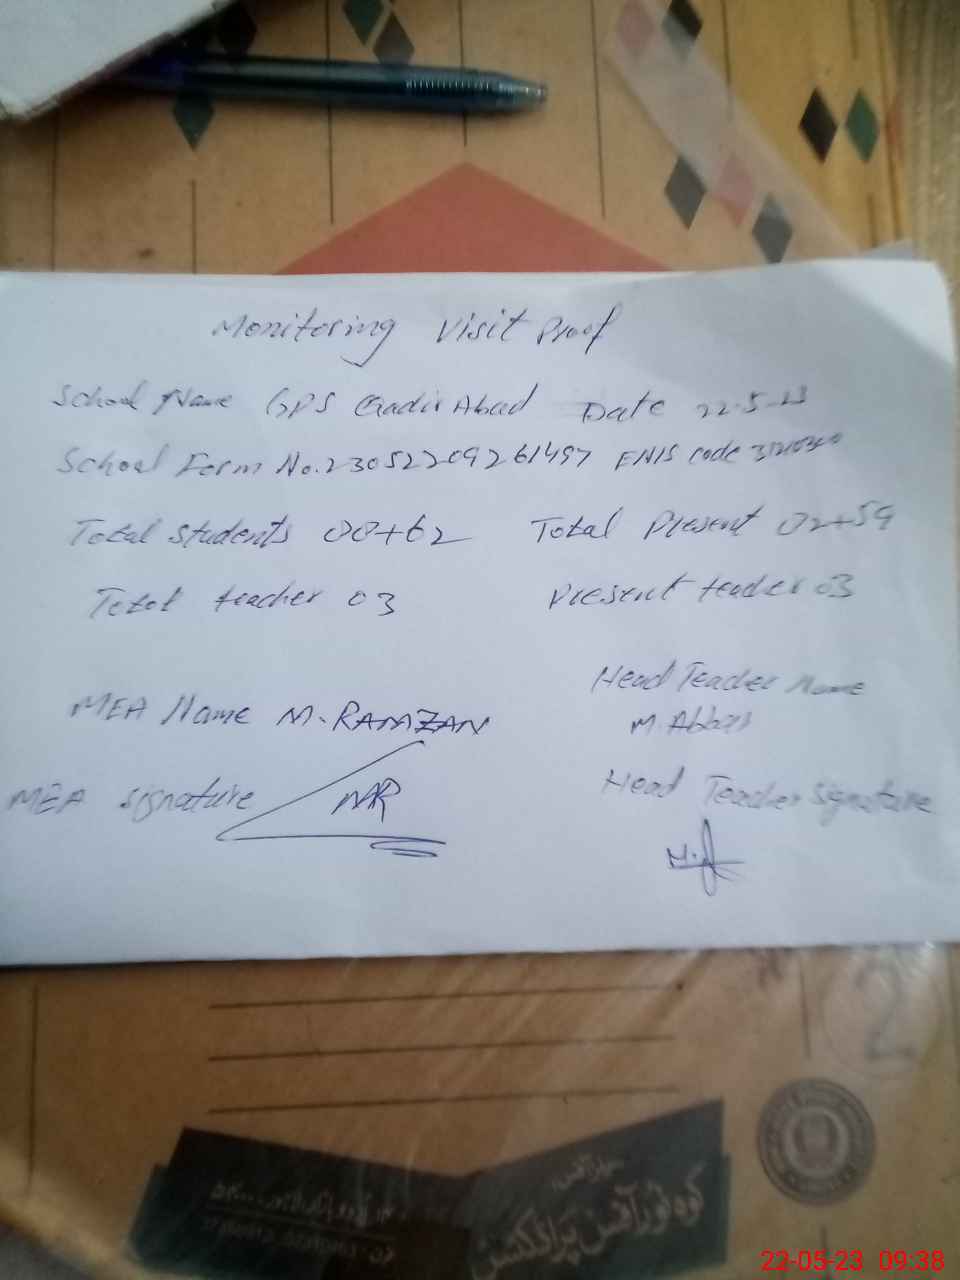 Monitoring Visit Proof
School Name GPS Qadir Abad Date 22-5-23
School Form No. 23052209261497 EMIS code
Total Students 00+62 Total Present 02+59
Total teacher 03 Present teacher 03
Head Teacher Name
MEA Name M. RAMZAN M. Abbas
MEA Signature MR Head Teacher Signature
2
کوہ نور آفس پراڈکٹس
22-05-23 09:38